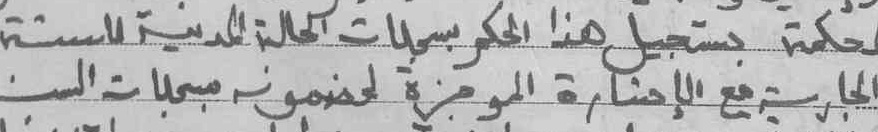 لحكمة بتسجيل هذا الحكم بسجلات الحالة المدنية للسنة
الجارية مع الإشارة الموجزة لمضمونه بسجلات السن